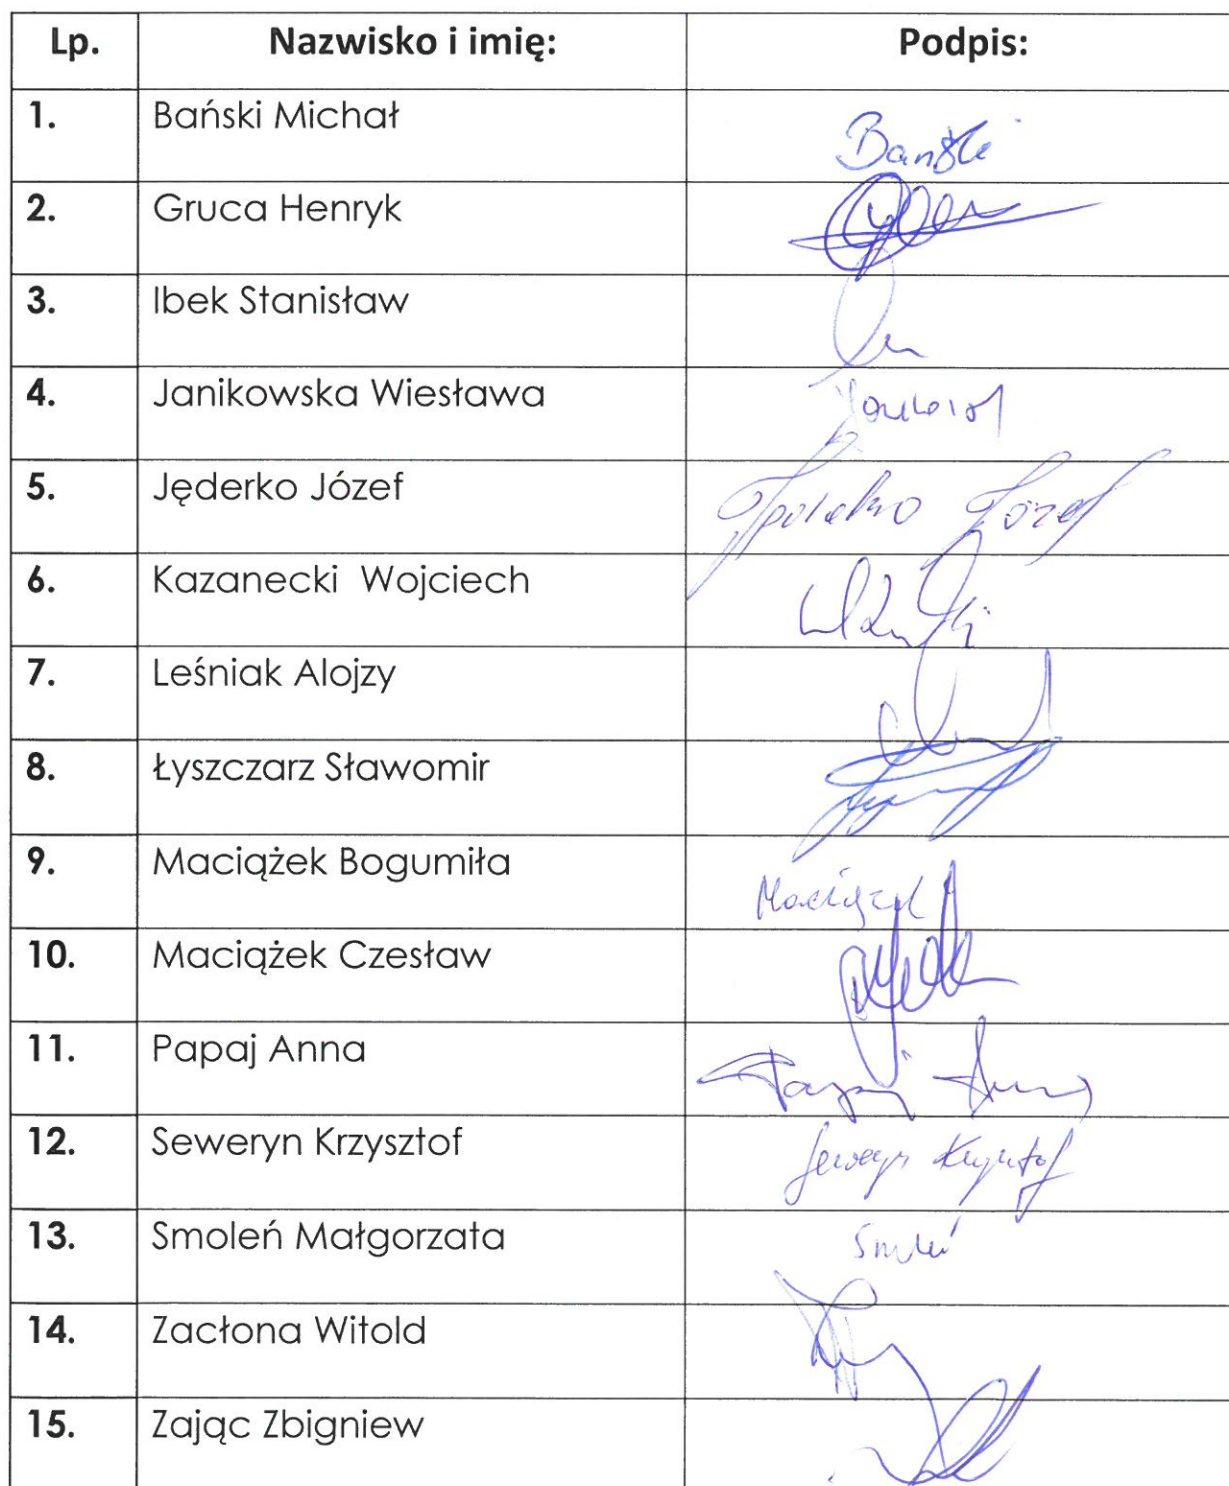 Lp. Nazwisko i imię: Podpis:
1. Bański Michał Bański
2. Gruca Henryk
3. Ibek Stanisław
4. Janikowska Wiesława
5. Jęderko Józef Jęderko Józef
6. Kazanecki Wojciech
7. Leśniak Alojzy
8. Łyszczarz Sławomir
9. Maciążek Bogumiła Maciążek
10. Maciążek Czesław
11. Papaj Anna Papaj Anna
12. Seweryn Krzysztof Seweryn Krzysztof
13. Smoleń Małgorzata Smoleń
14. Zacłona Witold
15. Zając Zbigniew